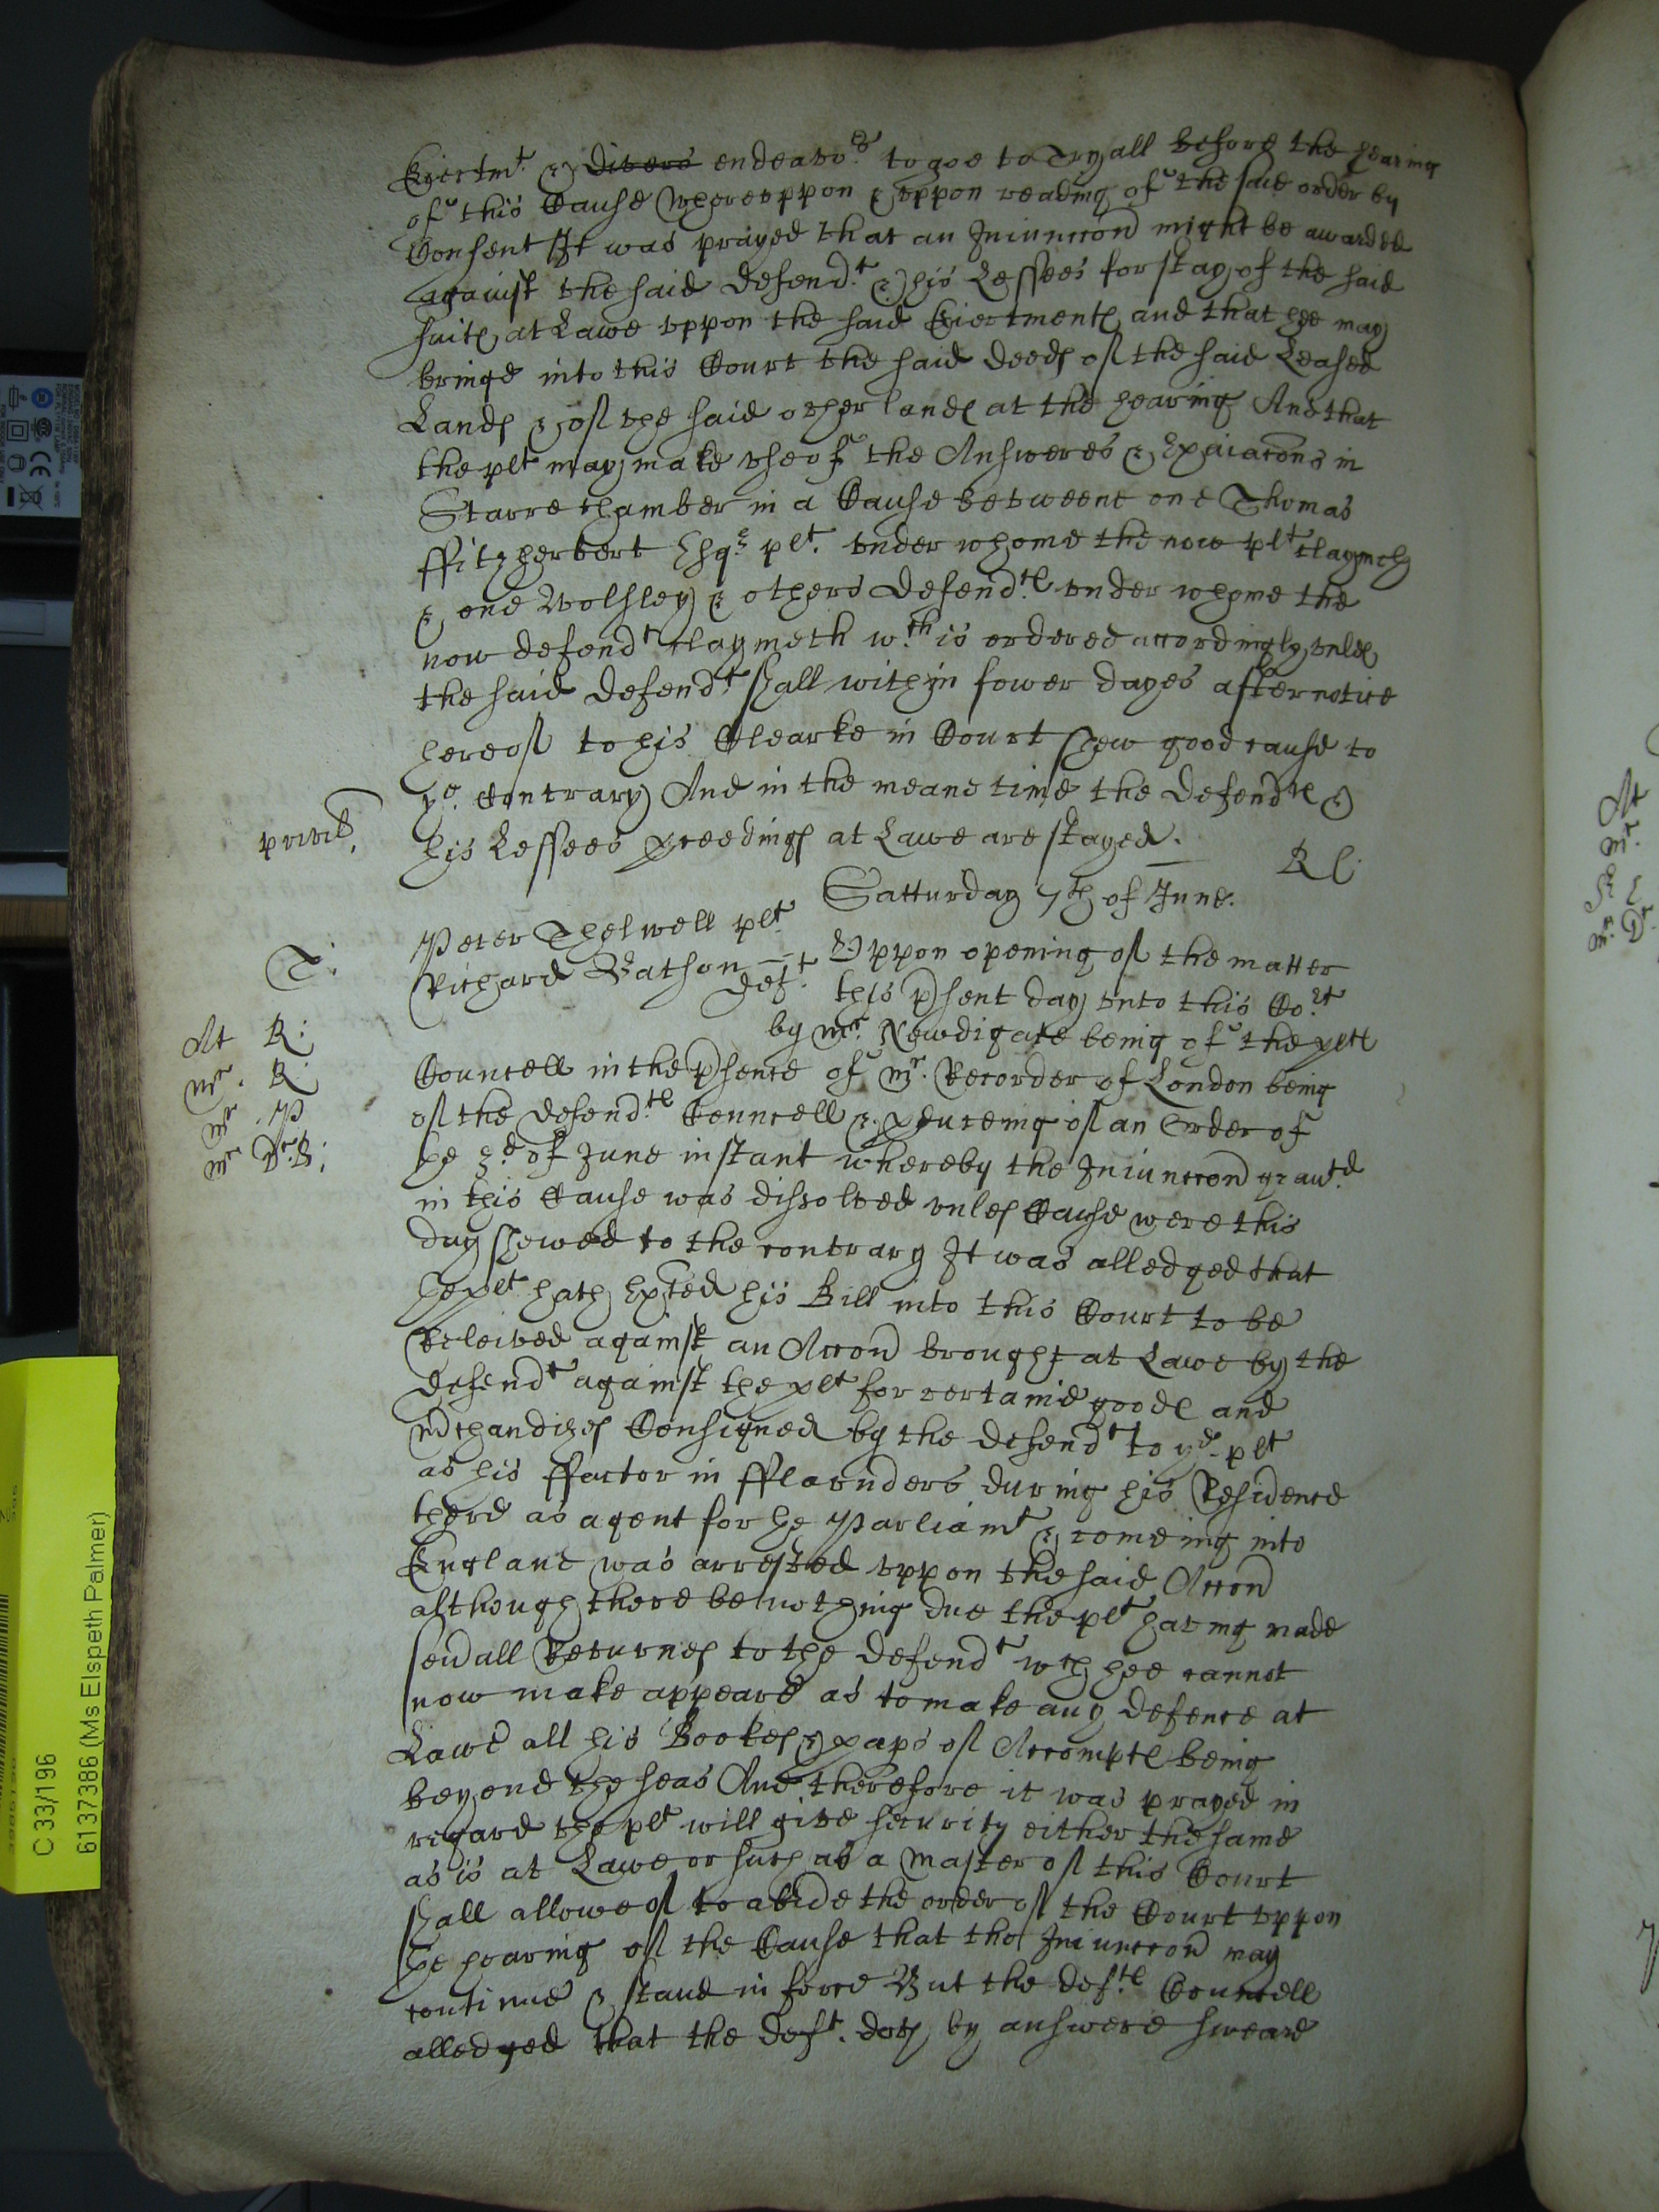 Eiectmt. & divers endeavors to goe to Tryall before the hearing
of this Cause Whereuppon & uppon reading of the said order by
Consent It was prayed that an Iniunccon might be awarded
against the said Defendt. & his Lessees for stay of the said
suites at Lawe uppon the said Eiectmentes and that hee may
bringe into this Court the said deedes of the said Leased
Landes & of the said other landes at the hearing And that
the plt may make use of the Answeres & Exaiacons in
Starre chamber in a Cause betweene one Thomas
ffitzherbert Esqr. plt. under whome the now plt claymeth
& one Wolsley & others Defendtes under whome the
now defendt claymeth wch is ordered accordingly, unles
the said Defendt shall within fower dayes after notice
hereof to his Clearke in Court shew good cause to
ye. Contrary And in the meane time the Defendtes &
his Lessees pceedinges at Lawe are stayed.
R l
Satturday 7th of June.
T:
Peter Thelwell plt
Richard Batson deft.
Uppon opening of the matter
this psent day unto this Cort
by mr. Newdigate being of the pltes
At R:
mr. R
mr. P
mr Dr. B:
Councell in the psence of mr. Recorder of London being
of the Defendtes Councell & pducemg of an Order of
the 3d of June instant whereby the Iniunccon grauted
in this Cause was dissolved unles Cause were this
day shewed to the contrary It was alledged that
the plt hath Exted his Bill into this Court to be
Releived against an Accon brought at Lawe by the
Defendt against the plt for certaine goodes and
mchandizes Consigned by the defendt to ye. plt
as his ffactor in fflaunders during his Residence
there as agent for the Parliamt & comeing into
England was arrested uppon the said Accon
although there be nothing due the plt having made
sevall Returnes to the Defendt wch hee cannot
now make appeare as to make any defence at
Lawe all his Bookes & paps of Accomptes being
beyond the seas And therefore it was prayed in
regard the plt will give security either the same
as is at Lawe or such as a Master of this Court
shall allowe of to abide the order of the Court uppon
the hearing of the Cause that the Iniunccon may
continue & stand in force But the deftes Councell
alledged that the deft. doth by answere sweare
C 33/196
6137386 (Ms Elspeth Palmer)